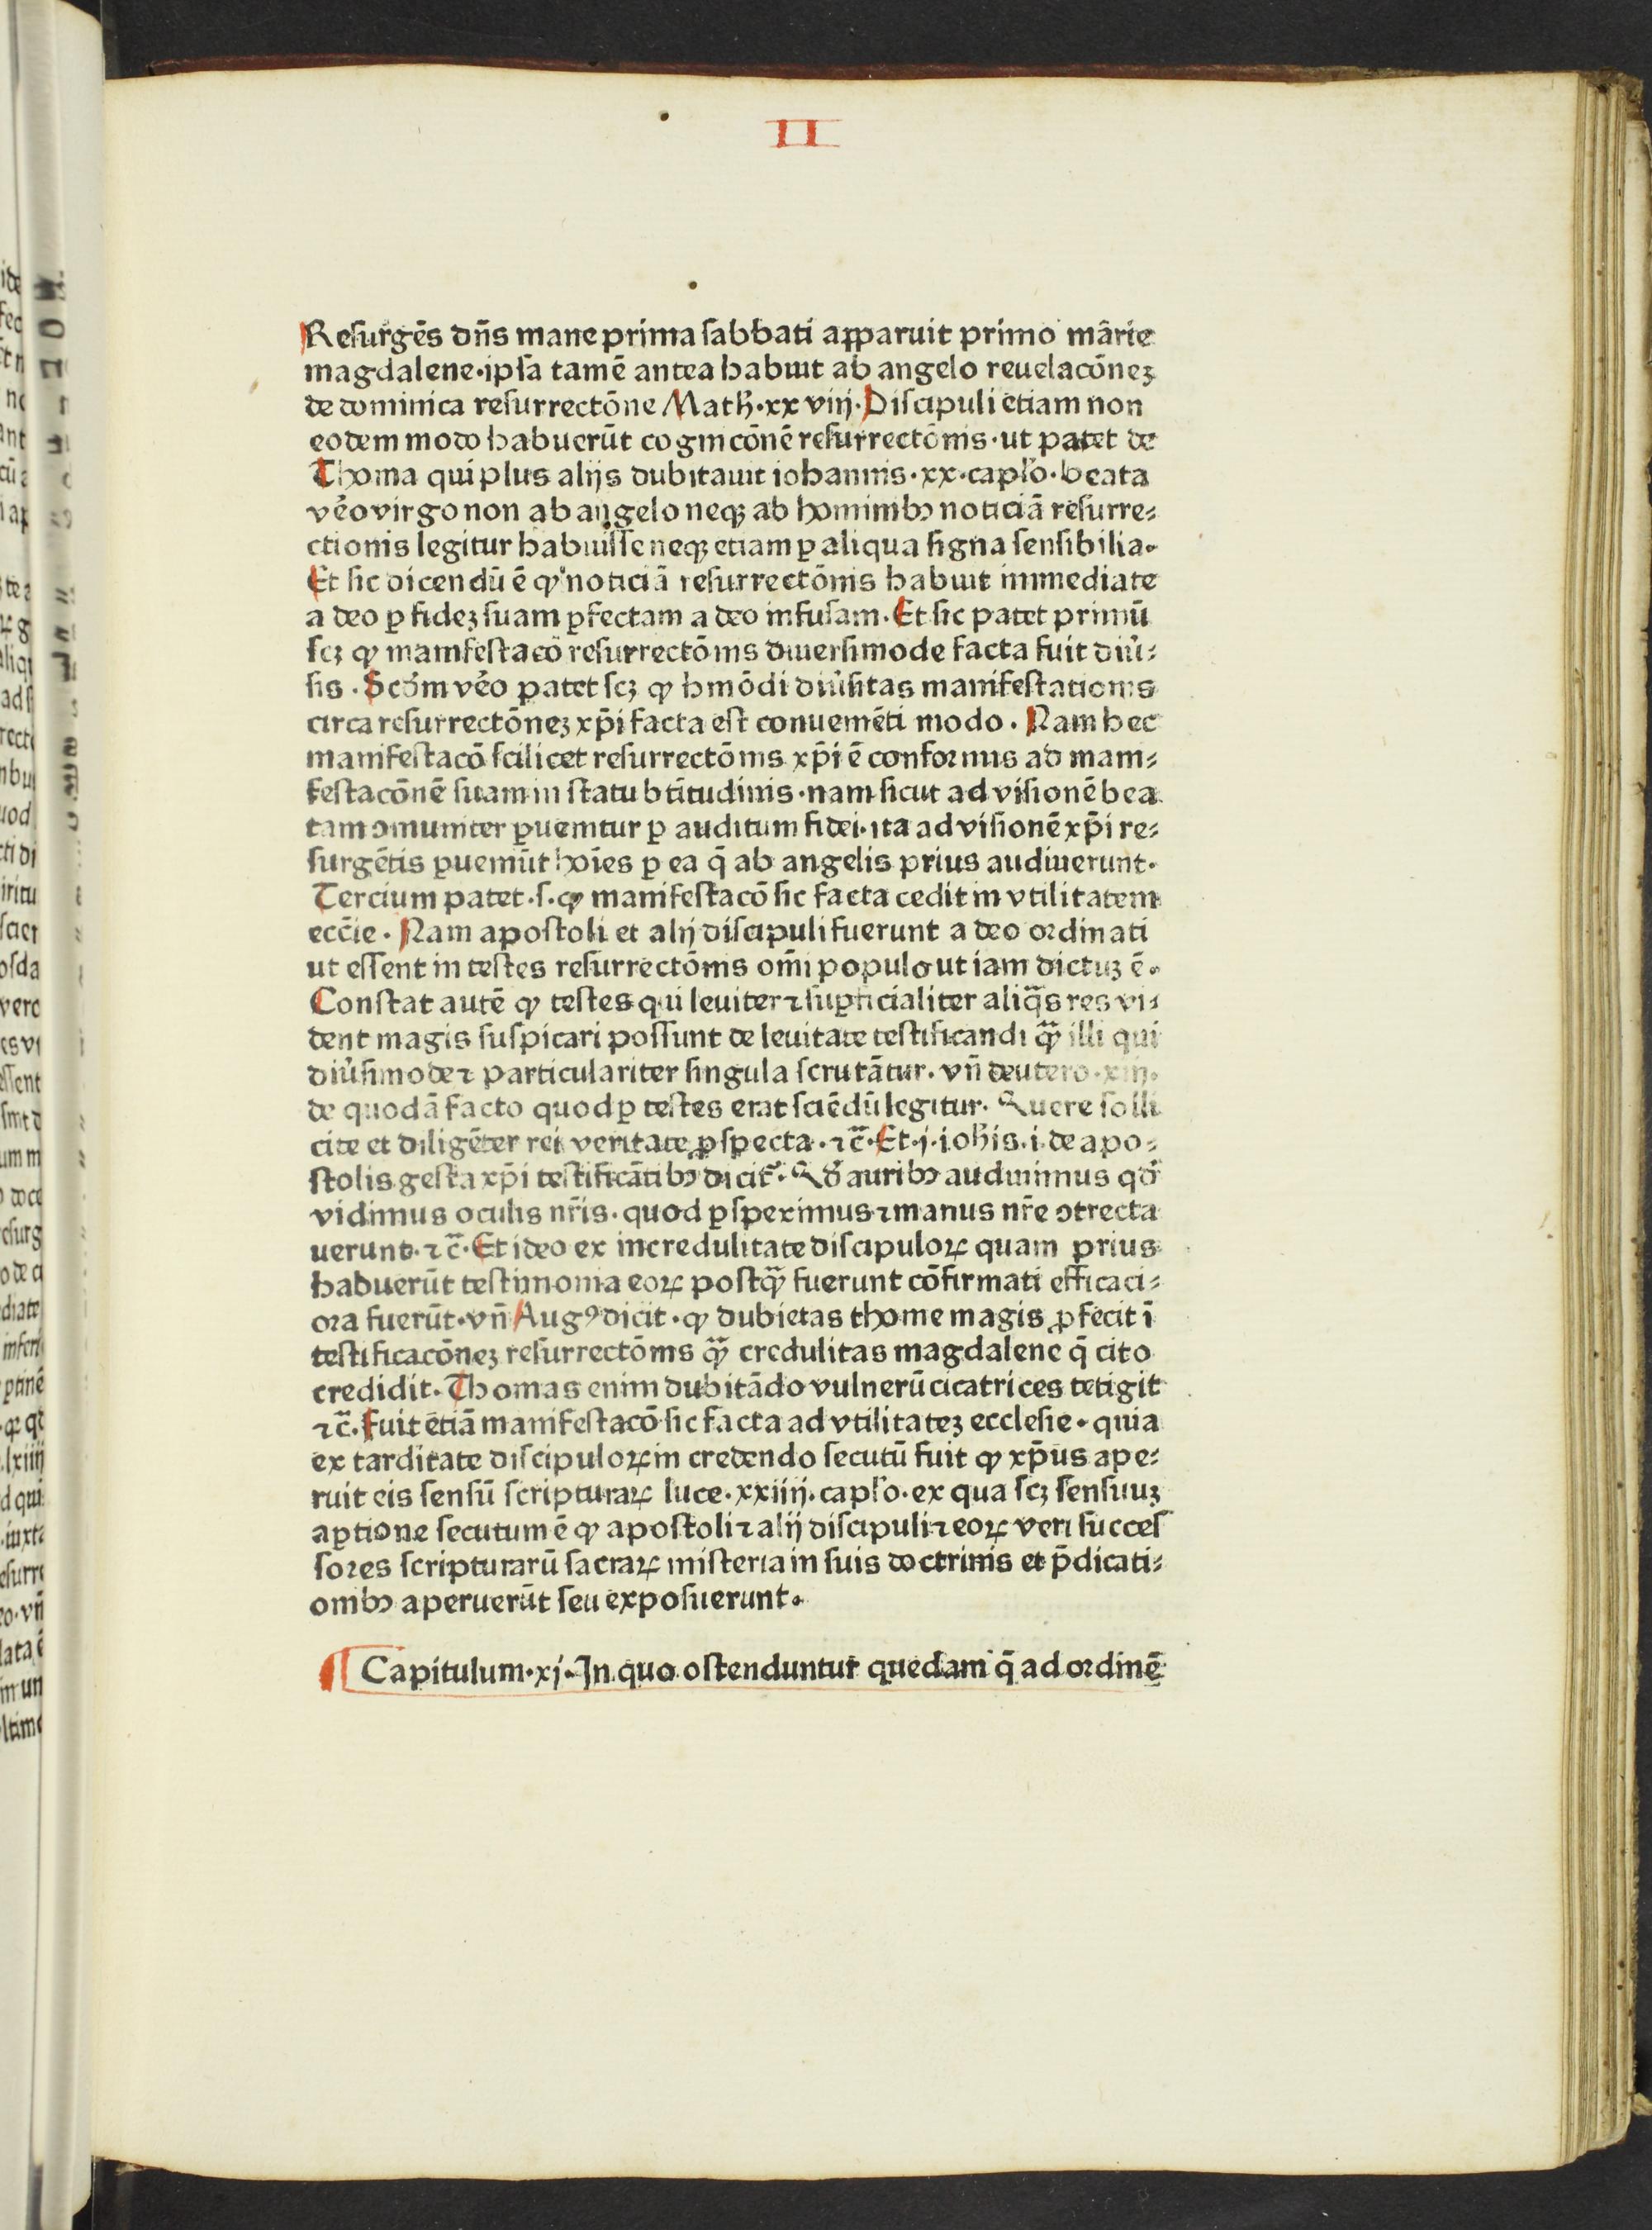 II
Resurgēs dn̄s mane prima sabbati apparuit primo marie
magdalene·ipsa tamē antea habuit ab angelo reuelacōneꝫ
de dominica resurrectōne Math̄·xxviij·Discipuli etiam non
eodem modo habuerūt cognicōnē resurrectōnis·ut patet de
Thoma qui plus alijs dubitauit iohannis·xx·caplo·beata
v̄o virgo non ab angelo neqꝫ ab hominibꝫ noticiā resurre⸗
ctionis legitur habuisse neqꝫ etiam ꝑ aliqua signa sensibilia·
Et sic dicendū ē ꝙ noticiā resurrectōnis habuit immediate
a deo ꝑ fideꝫ suam ꝑfectam a deo infusam·Et sic patet primū
scꝫ ꝙ manifestacō resurrectōnis diuersimode facta fuit diu̇⸗
sis·Scd̄m v̄o patet scꝫ ꝙ hmōdi diu̇sitas manifestationis
circa resurrectōneꝫ xp̄i facta est conueniēti modo·Nam hec
manifestacō scilicet resurrectōnis xp̄i ē conformis ad mani⸗
festacōnē suam in statu btītudinis·nam sicut ad visionē bea
tam ↄmuniter ꝑuenitur ꝑ auditum fidei·ita ad visionē xp̄i re⸗
surgētis ꝑueniūt hoīes ꝑ ea q̄ ab angelis prius audiuerunt·
Tercium patet·s·ꝙ manifestacō sic facta cedit in vtilitatem
ecc̄ie·Nam apostoli et alij discipuli fuerunt a deo ordinati
ut essent in testes resurrectōnis om̄i populo ut iam dictuꝫ ē·
Constat autē ꝙ testes qui leuiter ⁊ suꝑficialiter aliq̄s res vi⸗
dent magis suspicari possunt de leuitate testificandi qꝫ̄ illi qui
diu̇simode ⁊ particulariter singula scrutātur·vn̄ deutero·xiij·
de quodā facto quod ꝑ testes erat sciēdū legitur·Quere solli
cite et diligēter rei veritate ꝓspecta·⁊c̄·Et·j·ioh̄is·i·de apo⸗
stolis gesta xp̄i testificātibꝫ dicit᷑·Qd̓ auribꝫ audiuimus qd̓
vidimus oculis nr̄is·quod ꝑspeximus ⁊ manus nr̄e ↄtrecta
uerunt·⁊c̄·Et ideo ex incredulitate discipuloꝝ quam prius
habuerūt testimonia eoꝝ postqꝫ̄ fuerunt cōfirmati efficaci⸗
ora fuerūt·vn̄ Augꝰ dicit·ꝙ dubietas thome magis ꝓfecit ī
testificacōneꝫ resurrectōnis qꝫ̄ credulitas magdalene q̄ cito
credidit·Thomas enim dubitādo vulnerū cicatrices tetigit
⁊c̄·Fuit etiā manifestacō sic facta ad vtilitateꝫ ecclesie·quia
ex tarditate discipuloꝝ in credendo secutū fuit ꝙ xp̄us ape⸗
ruit eis sensū scripturaꝝ luce·xxiiij·caplo·ex qua scꝫ sensuuꝫ
aꝑtione secutum ē ꝙ apostoli ⁊ alij discipuli ⁊ eoꝝ veri succes
sores scripturarū sacraꝝ misteria in suis doctrinis et p̄dicati⸗
onibꝫ aperuerūt seu exposuerunt·
¶ Capitulum·xj·In quo ostenduntur quedam q̄ ad ordinē